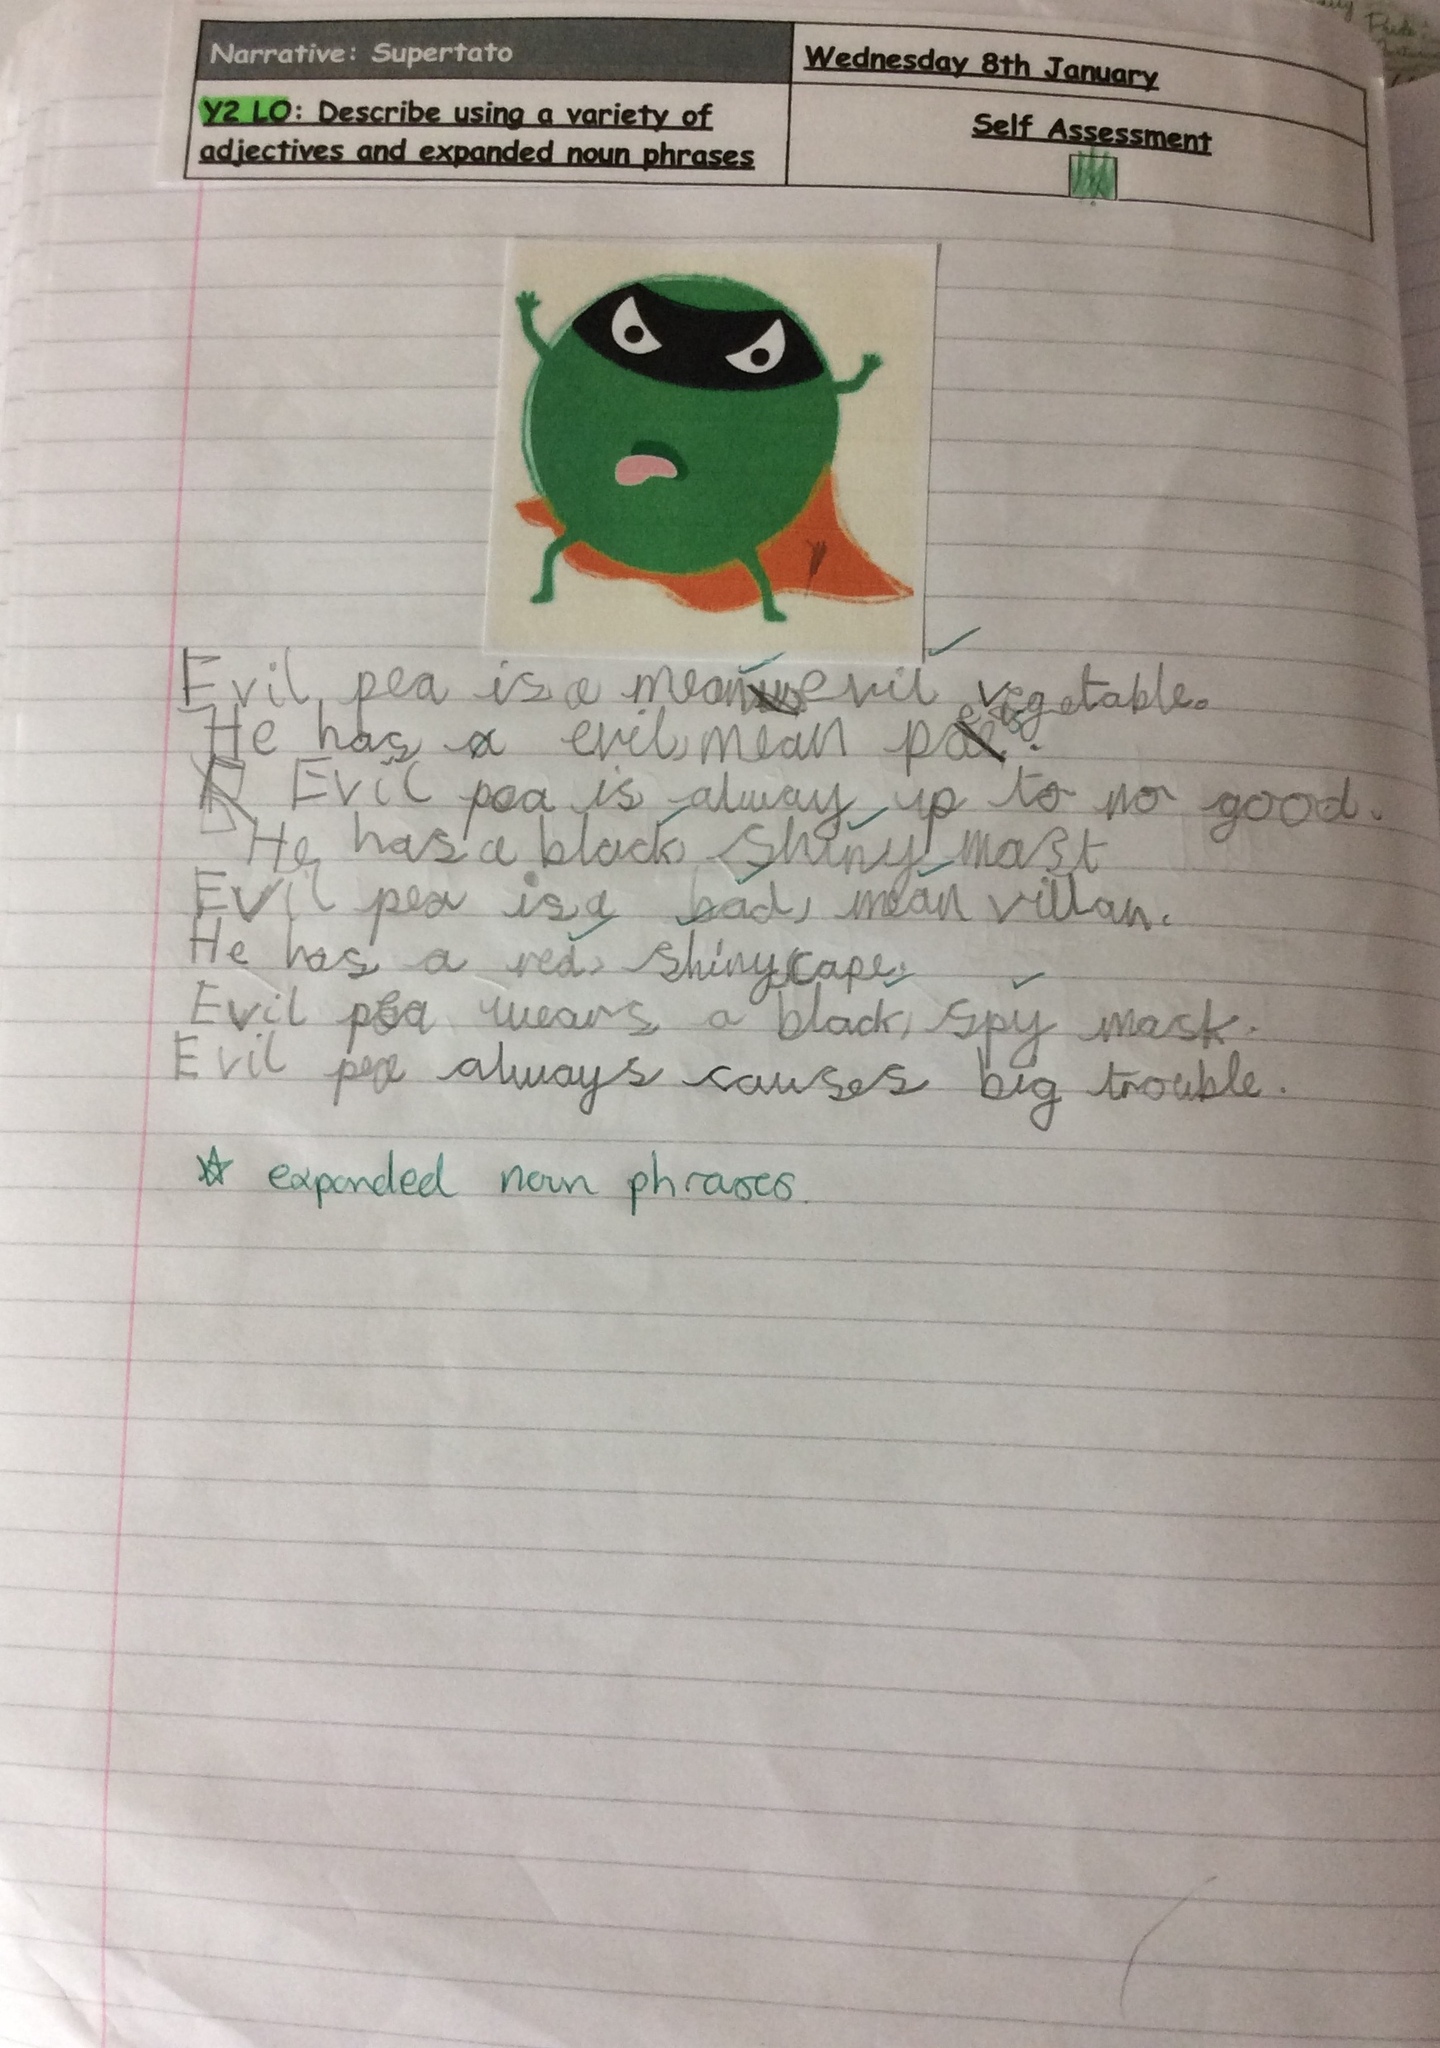 Narrative: Supertato
Wednesday 8th January
Y2 LO: Describe using a variety of
adjectives and expanded noun phrases
Self Assessment
Evil pea is a mean evil vegetable.
He has a evil, mean
Evil pea is alway up to no good.
He has a black, shiny mast
Evil pea is a bad, mean villan.
He has a red, shiny cape.
Evil pea wears a black, spy mask.
Evil pea always causes big trouble.
☆ expanded noun phrases.